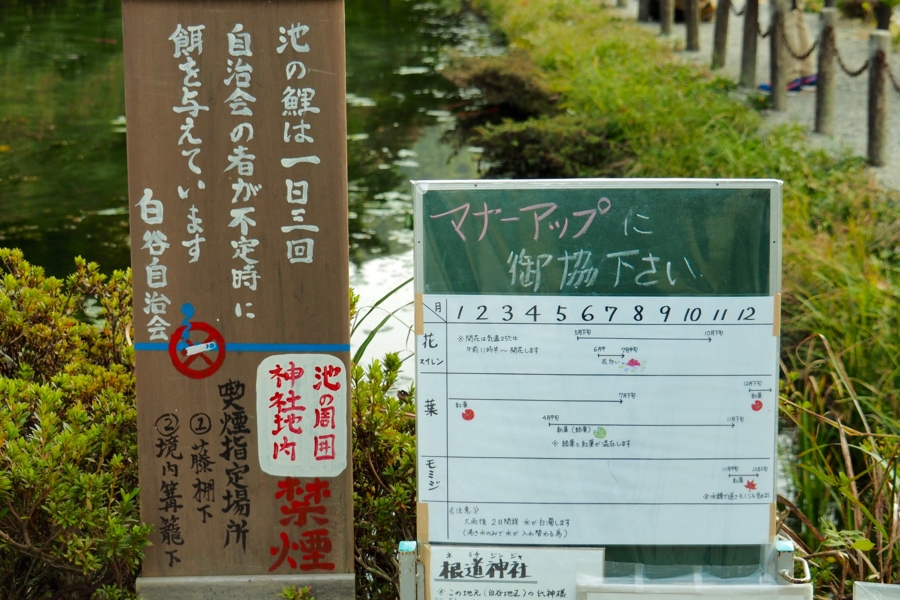 池の鯉は一日三回
自治会の者が不定時に
餌を与えています
白谷自治会
池の周囲
神社地内
禁煙
喫煙指定場所
①藤棚下
②境内篝籠下
マナーアップに
御協力下さい
月 1 2 3 4 5 6 7 8 9 10 11 12
花
マイレン
※開花は気温25℃は
午前11時半〜開花します
5月下旬
10月下旬
6月中
7月中旬
花かい
葉
紅葉
7月下旬
12月下旬
紅葉
4月中旬
11月下旬
新葉(緑葉)
※緑葉と紅葉が混在します
モミジ
11月中旬
12月上旬
紅葉
《注意》
大雨後 20間程 水が白濁します
(湧き水のみで水が入れ替わる為)
ネ ミチ ジンジャ
根道神社
※この地元(白谷地区)の氏神様